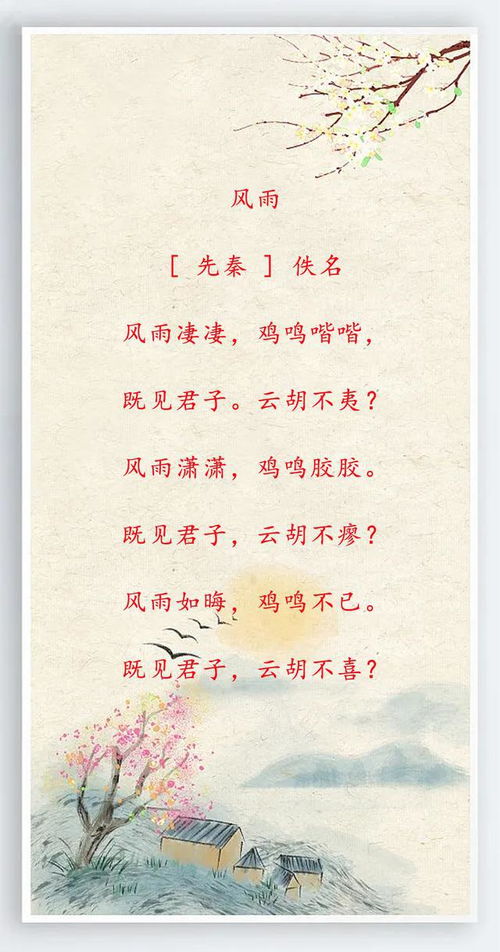 风雨
[ 先秦 ] 佚名
风雨凄凄，鸡鸣喈喈，
既见君子。云胡不夷？
风雨潇潇，鸡鸣胶胶。
既见君子，云胡不瘳？
风雨如晦，鸡鸣不已。
既见君子，云胡不喜？